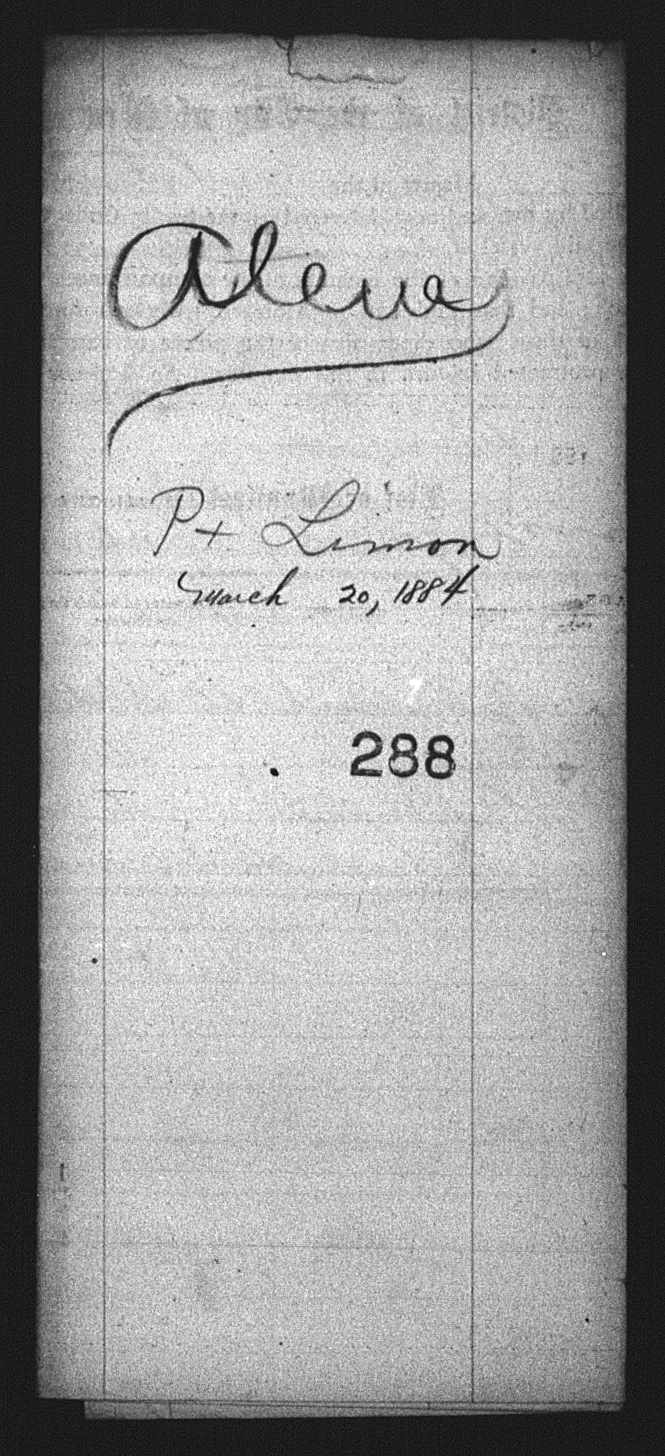 Alene
Pt Limon
March 20, 1884
288